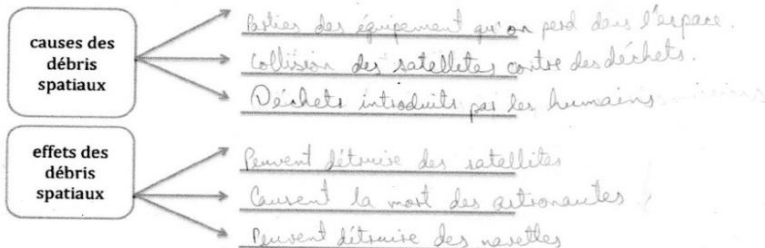 causes des
débris
spatiaux
Parties des équipement qu'on perd dans l'espace.
Collision des satellites contre des déchets.
Déchets introduits par les humains
effets des
débris
spatiaux
Peuvent détruire des satellites
Causent la mort des astronautes
Peuvent détruire des navettes